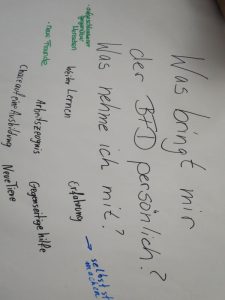 Was bringt mir
der BFD persönlich?
Was nehme ich mit?
• aufgeschlossener
gegenüber
Menschen
• neue Freunde
weiter Lernen
Arbeitszeugnis
Chance auf eine Ausbildung
Erfahrung
Gegenseitige hilfe
Neue Tiere
→ selbstst